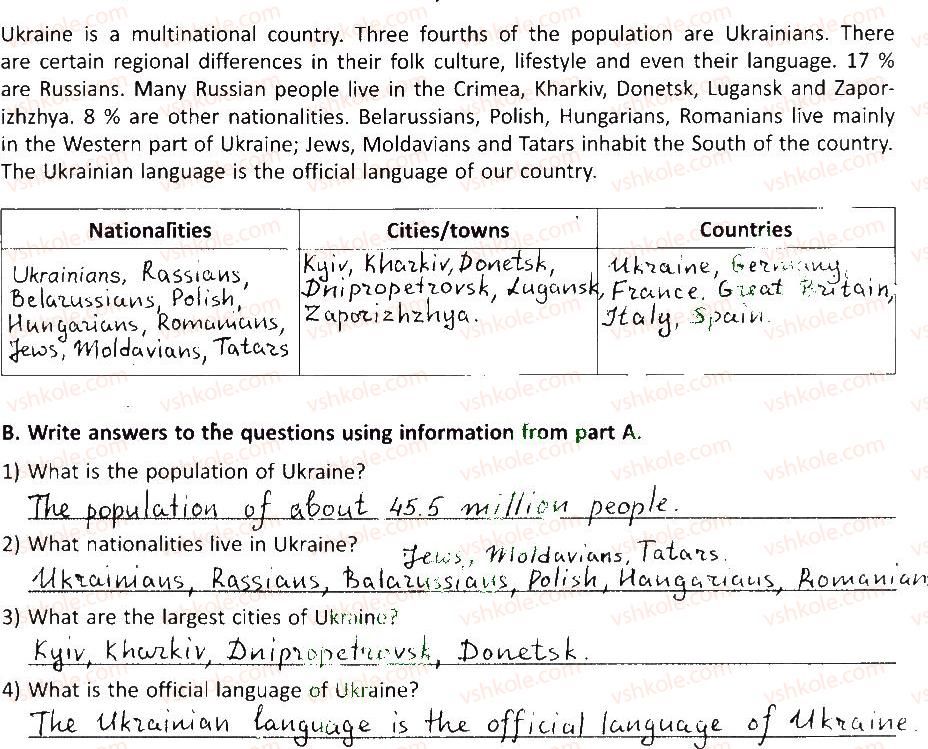 Ukraine is a multinational country. Three fourths of the population are Ukrainians. There
are certain regional differences in their folk culture, lifestyle and even their language. 17 %
are Russians. Many Russian people live in the Crimea, Kharkiv, Donetsk, Lugansk and Zapor-
izhzhya. 8 % are other nationalities. Belarussians, Polish, Hungarians, Romanians live mainly
in the Western part of Ukraine; Jews, Moldavians and Tatars inhabit the South of the country.
The Ukrainian language is the official language of our country.
Nationalities Cities/towns Countries
Ukrainians, Rassians,
Belarussians, Polish,
Hungarians, Romanians,
Jews, Moldavians, Tatars
Kyiv, Kharkiv, Donetsk,
Dnipropetrovsk, Lugansk,
Zaporizhzhya.
Ukraine, Germany,
France, Great Britain,
Italy, Spain.
B. Write answers to the questions using information from part A.
1) What is the population of Ukraine?
The population of about 45.5 million people.
2) What nationalities live in Ukraine?
Jews, Moldavians, Tatars.
Ukrainians, Rassians, Balarussians, Polish, Hangarians, Romanian
3) What are the largest cities of Ukraine?
Kyiv, Kharkiv, Dnipropetrovsk, Donetsk.
4) What is the official language of Ukraine?
The Ukrainian language is the official language of Ukraine.
vshkole.com